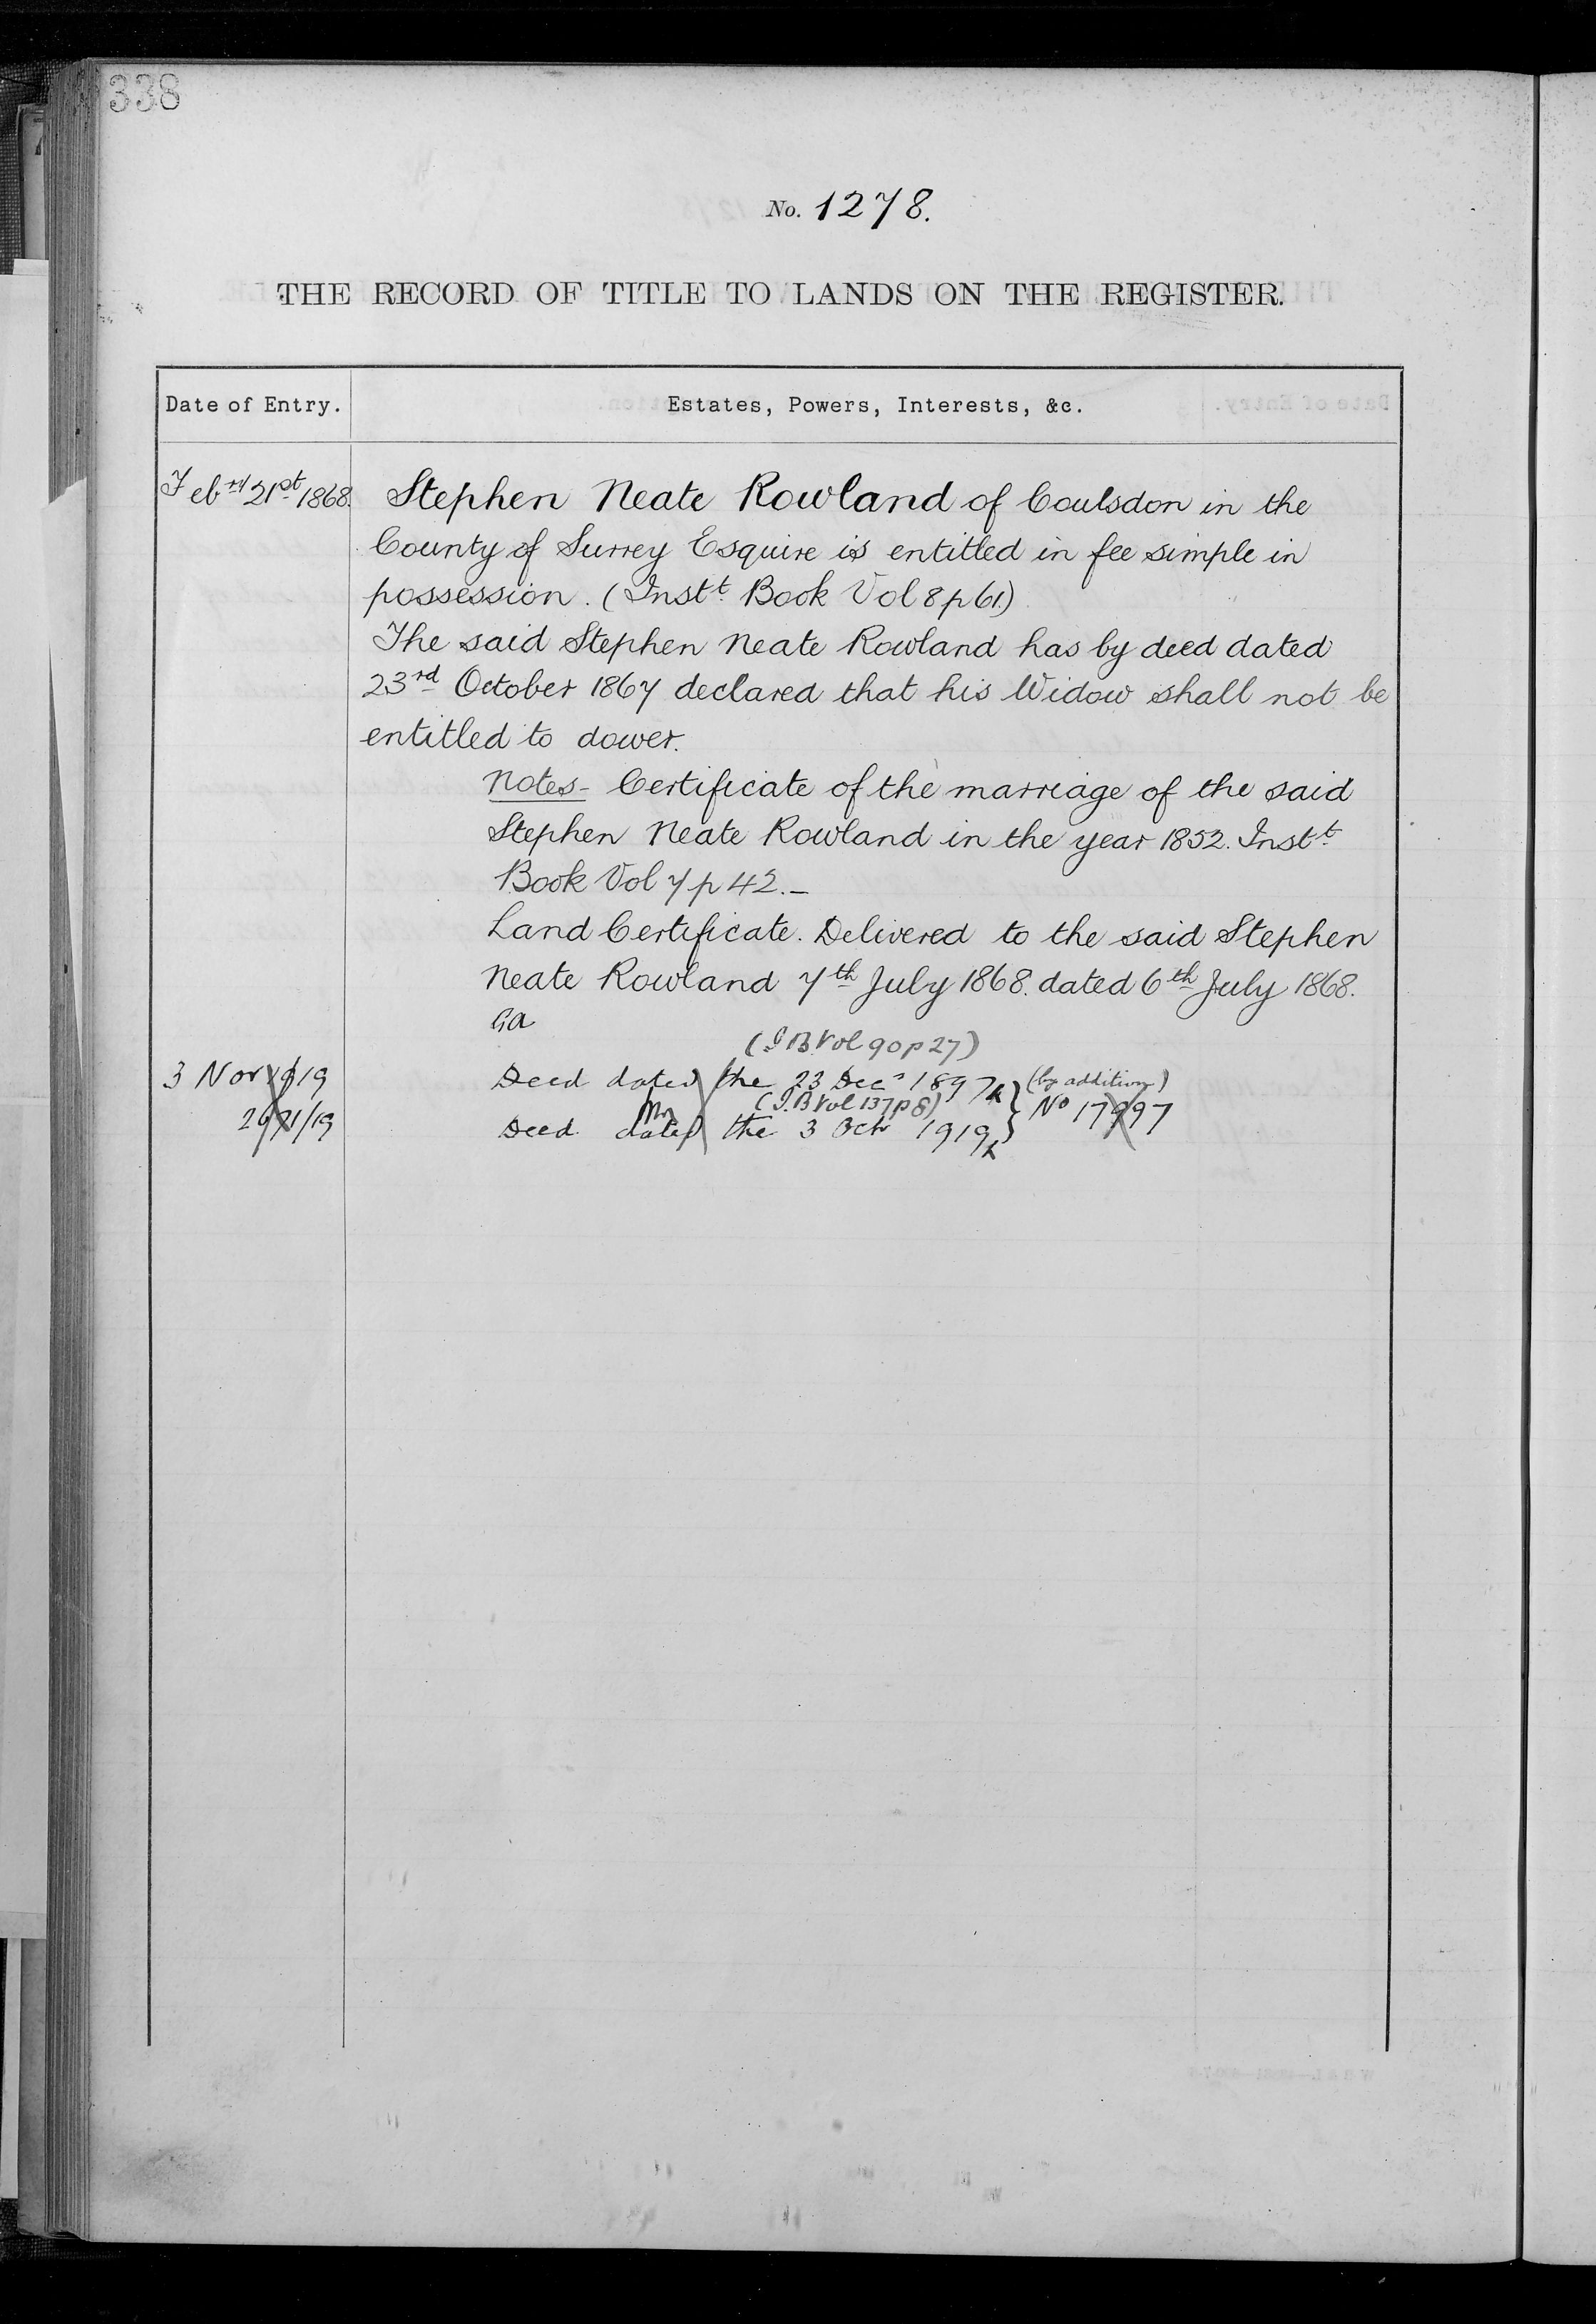 338
No. 1278.
THE RECORD OF TITLE TO LANDS ON THE REGISTER.
Date of Entry. Estates, Powers, Interests, &c.
Febry 21st 1868. Stephen Neate Rowland of Coulsdon in the
County of Surrey Esquire is entitled in fee simple in
possession. (Instt. Book Vol 8 p 61.)
The said Stephen Neate Rowland has by deed dated
23rd October 1867 declared that his Widow shall not be
entitled to dower.
Notes- Certificate of the marriage of the said
Stephen Neate Rowland in the year 1852. Instt.
Book Vol 7 p 42.-
Land Certificate. Delivered to the said Stephen
Neate Rowland 7th July 1868. dated 6th July 1868.
GA
(I B Vol 90 p 27)
3 Nov 1919 Deed dated the 23 Decr 1897 (by addition)
(I.B Vol 137 p 8) No 17997
Deed dated the 3 Octr 1919